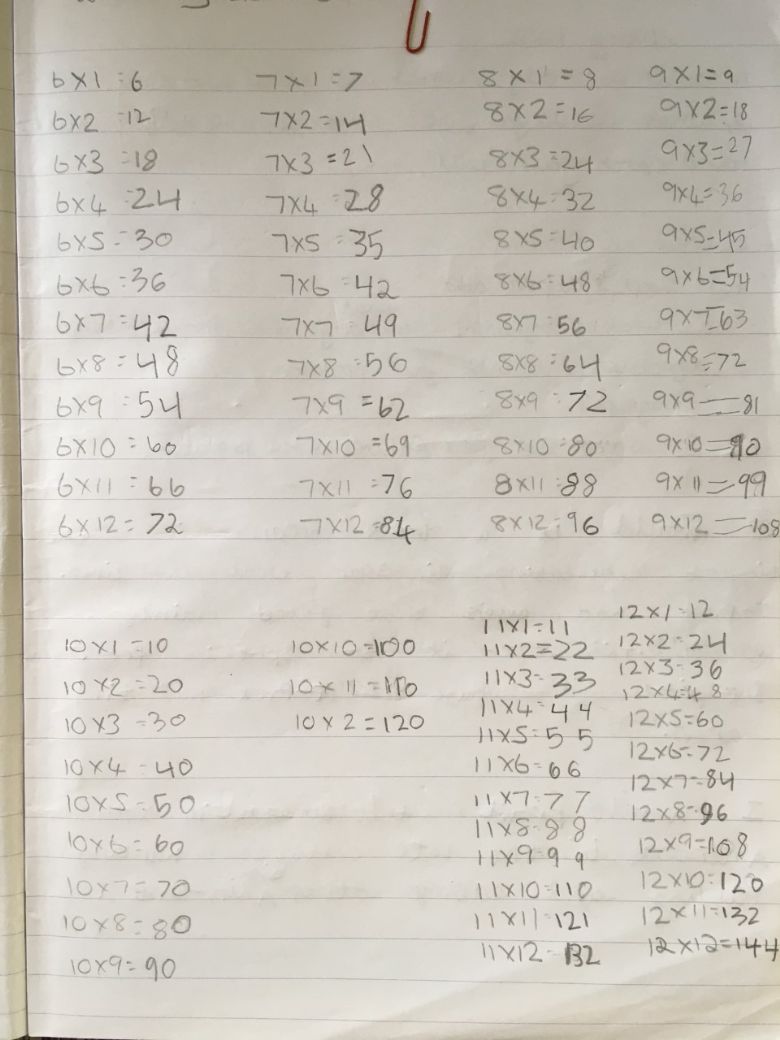 6x1=6 7x1=7 8x1=8 9x1=9
6x2=12 7x2=14 8x2=16 9x2=18
6x3=18 7x3=21 8x3=24 9x3=27
6x4=24 7x4=28 8x4=32 9x4=36
6x5=30 7x5=35 8x5=40 9x5=45
6x6=36 7x6=42 8x6=48 9x6=54
6x7=42 7x7=49 8x7=56 9x7=63
6x8=48 7x8=56 8x8=64 9x8=72
6x9=54 7x9=62 8x9=72 9x9=81
6x10=60 7x10=69 8x10=80 9x10=90
6x11=66 7x11=76 8x11=88 9x11=99
6x12=72 7x12=84 8x12=96 9x12=108
10x1=10
10x2=20
10x3=30
10x4=40
10x5=50
10x6=60
10x7=70
10x8=80
10x9=90
10x10=100
10x11=110
10x2=120
11x1=11
11x2=22
11x3=33
11x4=44
11x5=55
11x6=66
11x7=77
11x8=88
11x9=99
11x10=110
11x11=121
11x12=132
12x1=12
12x2=24
12x3=36
12x4=48
12x5=60
12x6=72
12x7=84
12x8=96
12x9=108
12x10=120
12x11=132
12x12=144